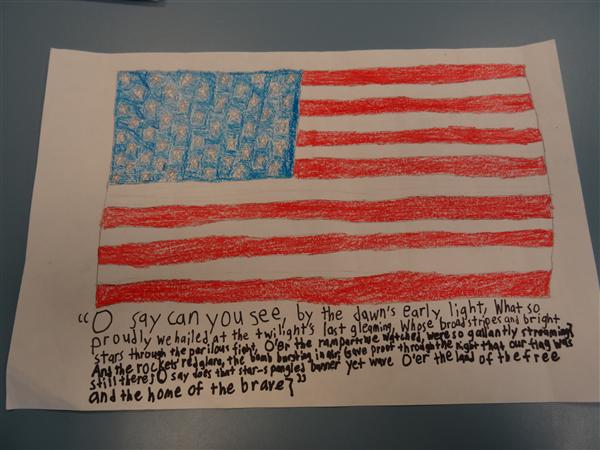 “O say can you see, by the dawn's early light, What so
proudly we hailed at the twilight's last gleaming, Whose broad stripes and bright
stars through the perilous fight, O'er the ramparts we watched, were so gallantly streaming?
And the rockets red glare, the bomb bursting in air, Gave proof through the night that our flag was
still there; O say does that star-spangled banner yet wave O'er the land of the free
and the home of the brave?”